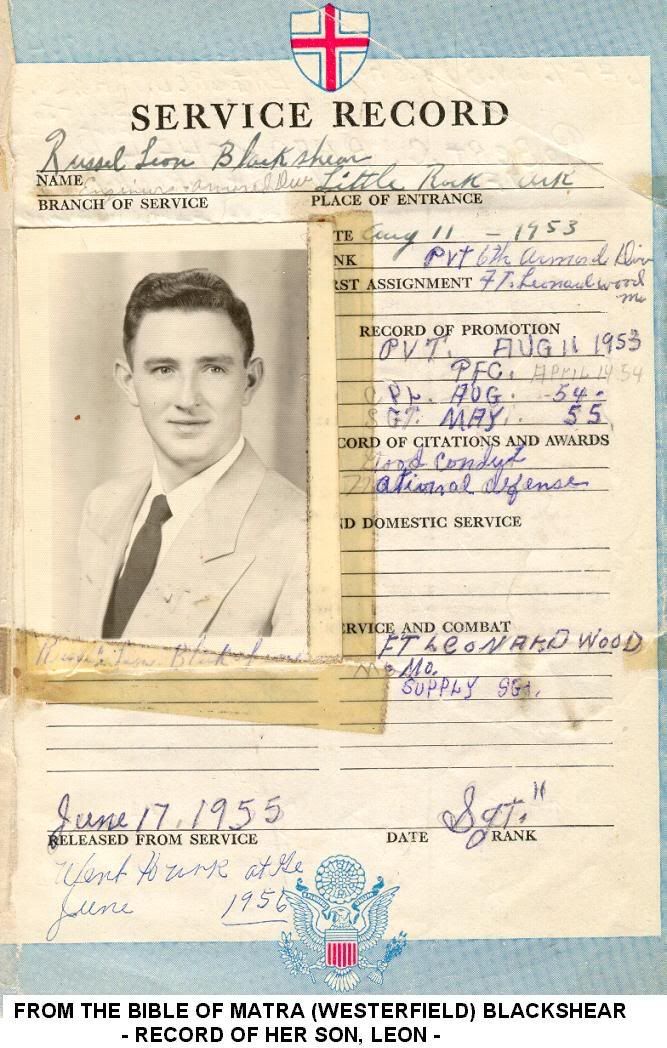 SERVICE RECORD
Russel Leon Blackshear
NAME
Engineers - Armored Div Little Rock - Ark
BRANCH OF SERVICE PLACE OF ENTRANCE
TE Aug 11 - 1953
NK PVT 6th Armored Div
RST ASSIGNMENT FT. Leonard wood
Mo
RECORD OF PROMOTION
PVT. AUG 11 1953
PFC. APRIL 14 54
CPL. AUG. 54 -
SGT. MAY. 55
CORD OF CITATIONS AND AWARDS
Good Conduct
National defense
ND DOMESTIC SERVICE
ERVICE AND COMBAT
FT LEONARD WOOD
Mo.
SUPPLY SGT.
Leon
June 17, 1955 Sgt."
RELEASED FROM SERVICE DATE RANK
Went to work at the
June 1956
FROM THE BIBLE OF MATRA (WESTERFIELD) BLACKSHEAR
- RECORD OF HER SON, LEON -